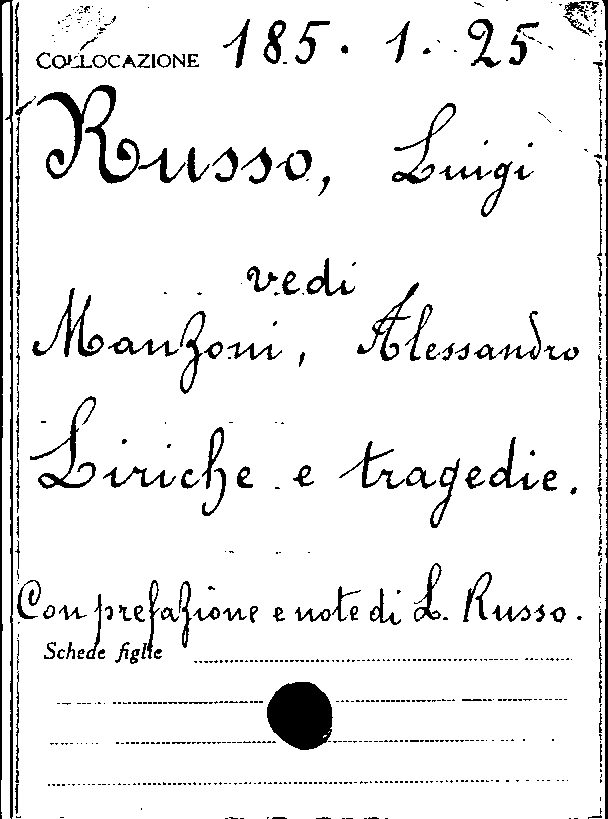 COLLOCAZIONE 185.1.25
Russo, Luigi
vedi
Manzoni, Alessandro
Liriche e tragedie.
Con prefazione e note di L. Russo.
Schede figlie